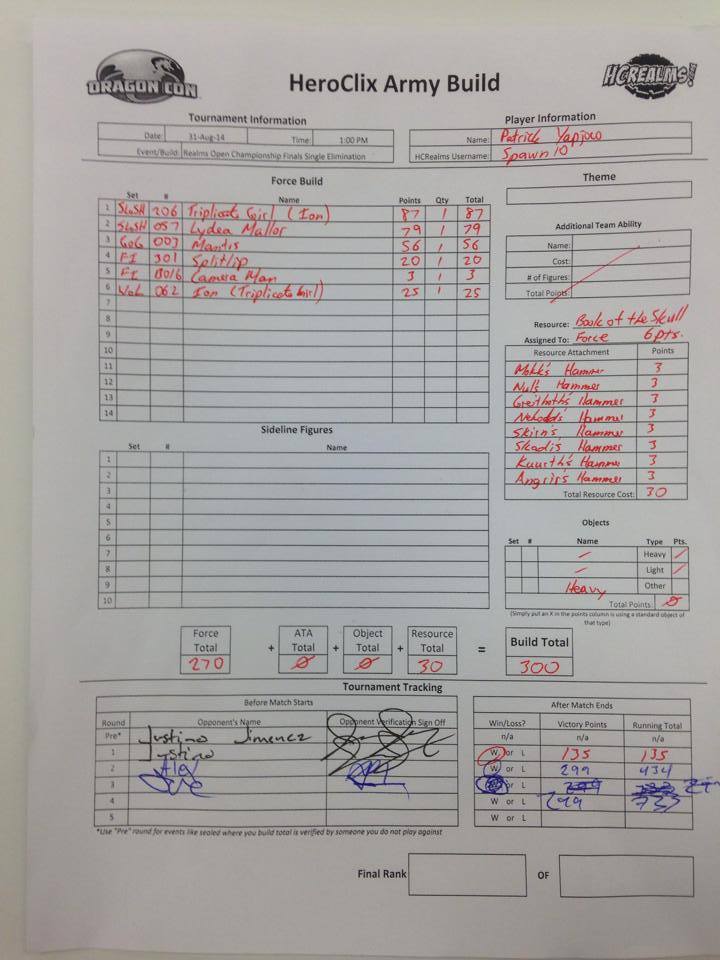 DRAGON CON
HeroClix Army Build
HCREALMS.com
Tournament Information
Date: 31-Aug-14 Time: 1:00 PM
Event/Build: Realms Open Championship Finals Single Elimination
Player Information
Name: Patrick Yapjoco
HCRealms Username: Spawn10
Force Build
Set # Name Points Qty Total
1 SLOSH 206 Triplicate Girl (Ion) 87 1 87
2 SLOSH 057 Lydea Mallor 79 1 79
3 GOG 003 Mantis 56 1 56
4 FI 301 Splitlip 20 1 20
5 FI B016 Camera Man 3 1 3
6 WoL 062 Ion (Triplicate Girl) 25 1 25
7
8
9
10
11
12
13
14
Theme
Additional Team Ability
Name:
Cost:
# of Figures:
Total Points:
Resource: Book of the Skull
Assigned To: Force 6pts.
Resource Attachment Points
Mokk's Hammer 3
Nul's Hammer 3
Greithoth's Hammer 3
Nerkodd's Hammer 3
Skirn's Hammer 3
Skadi's Hammer 3
Kuurth's Hammer 3
Angrir's Hammer 3
Total Resource Cost: 30
Sideline Figures
Set # Name
1
2
3
4
5
6
7
8
9
10
Objects
Set # Name Type Pts.
Heavy
Light
Heavy Other
Total Points: 0
(Simply put an X in the points column is using a standard object of that type)
Force Total 270 + ATA Total 0 + Object Total 0 + Resource Total 30 = Build Total 300
Tournament Tracking
Before Match Starts
Round Opponent's Name Opponent Verification Sign Off
Pre* Justino Jimenez
1 Justino
2 Alex
3
4
5
After Match Ends
Win/Loss? Victory Points Running Total
n/a n/a n/a
W or L 135 135
W or L 299 434
W or L 299 733
W or L
*Use "Pre" round for events like sealed where you build total is verified by someone you do not play against
Final Rank OF